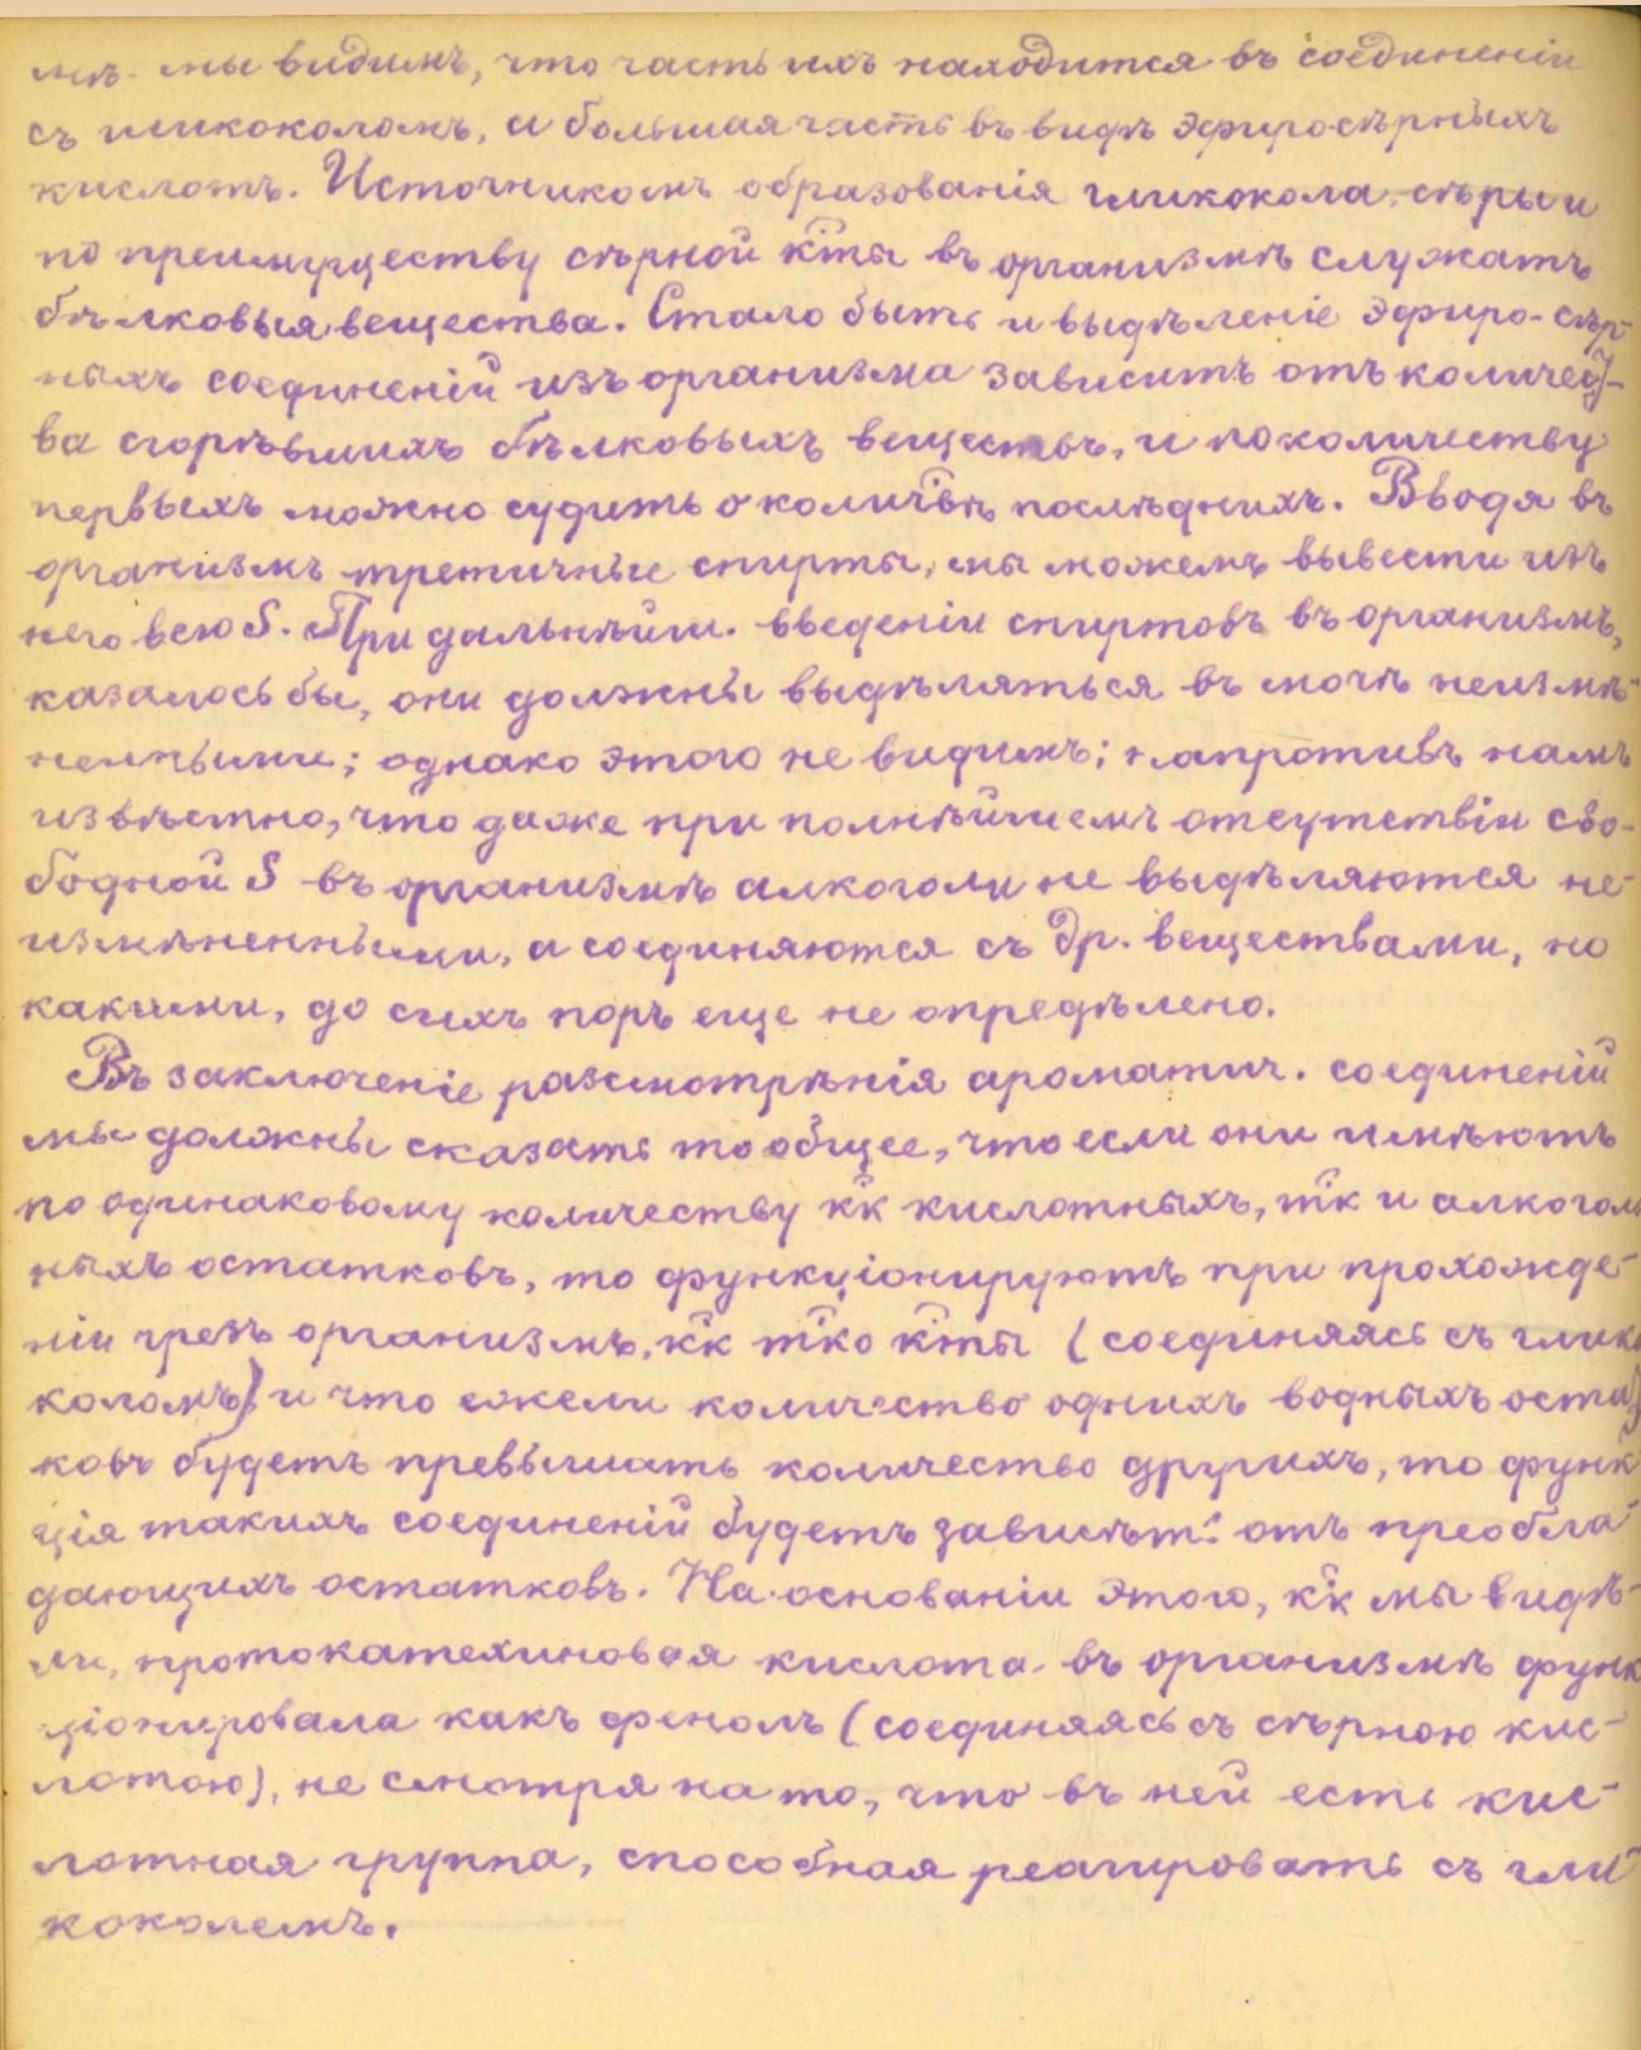 мѣ мы видимъ, что часть ихъ находится въ соединеніи
съ гликоколомъ, а большая часть въ видѣ эфиро-сѣрныхъ
кислотъ. Источникомъ образованія гликокола, сѣры и
по преимуществу сѣрной к͠ты въ организмѣ служатъ
бѣлковыя вещества. Стало быть и выдѣленіе эфиро-сѣр-
ныхъ соединеній изъ организма зависитъ отъ количест-
ва сгорѣвшихъ бѣлковыхъ веществъ, и по количеству
первыхъ можно судить о колич͠вѣ послѣднихъ. Вводя въ
организмъ третичные спирты, мы можемъ вывести изъ
него всю S. При дальнѣйш. введеніи спиртовъ въ организмъ,
казалось бы, они должны выдѣляться въ мочѣ неизмѣ-
ненными; однако этого не видимъ; напротивъ намъ
извѣстно, что даже при полнѣйшемъ отсутствіи сво-
бодной S въ организмѣ алкоголи не выдѣляются не-
измѣненными, а соединяются съ др. веществами, но
какими, до сихъ поръ еще не опредѣлено.
Въ заключеніе разсмотрѣнія ароматич. соединеній
мы должны сказать то общее, что если они имѣютъ
по одинаковому количеству к͠к кислотныхъ, т͠к и алкоголь
ныхъ остатковъ, то функціонируютъ при прохожде-
ніи чрезъ организмъ, к͠к т͠ко к͠ты (соединяясь съ глико
коломъ) и что ежели количество однихъ водныхъ остат
ковъ будетъ превышать количество другихъ, то функ
ція такихъ соединеній будетъ зависѣть отъ преобла-
дающихъ остатковъ. На основаніи этого, к͠к мы видѣ-
ли, протокатехиновая кислота въ организмѣ функ
ціонировала какъ фенолъ (соединяясь съ сѣрною кис-
лотою), не смотря на то, что въ ней есть кис-
лотная группа, способная реагировать съ гли-
коколемъ.